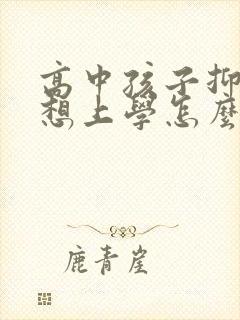 高中孩子抑
想上學怎麼
鹿青崖